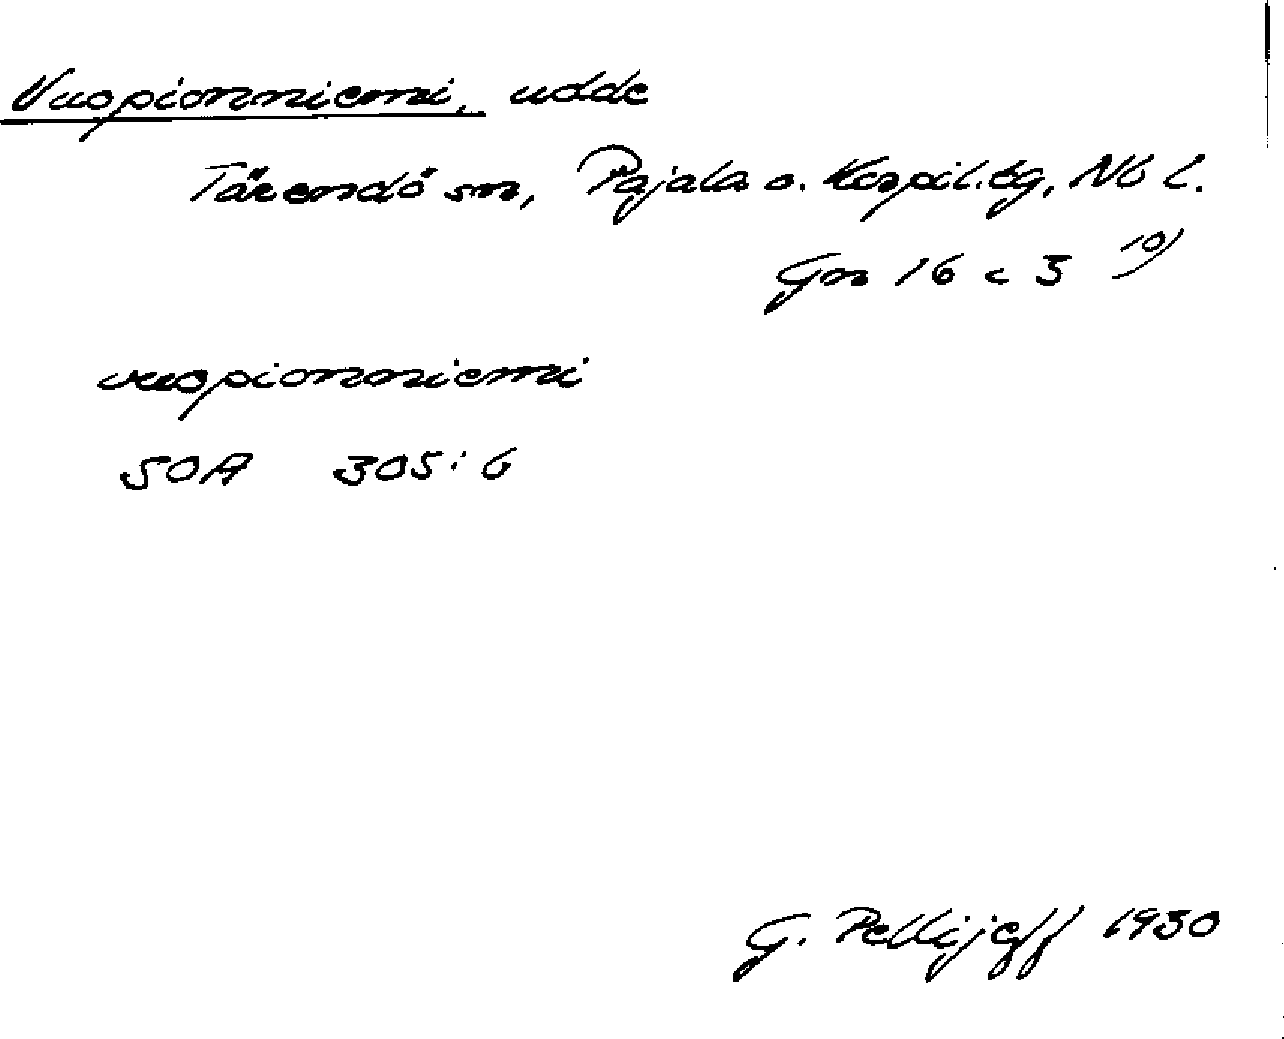 Vuopionniemi, udde
Tärendö sn, Pajala o. Korpil. tg, Nb l.
Gn 16 c 3 10)
vuopionniemi
SOA 305:6
G. Pellijeff 1930